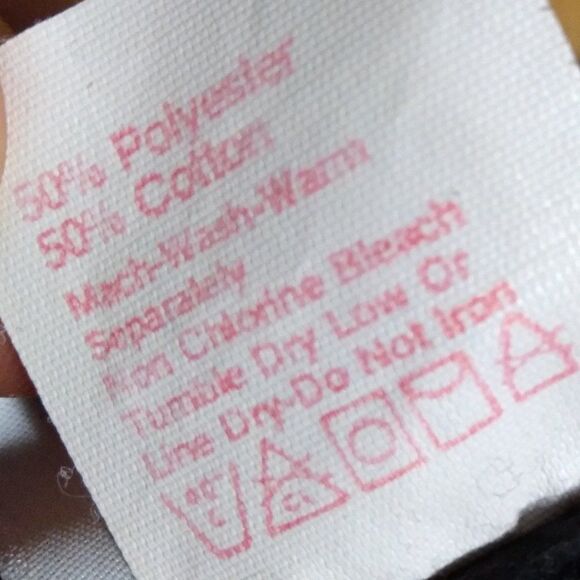 50% Polyester
50% Cotton
Mach-Wash-Warm
Separately
Non Chlorine Bleach
Tumble Dry Low Or
Line Dry-Do Not Iron
40°
C
CL